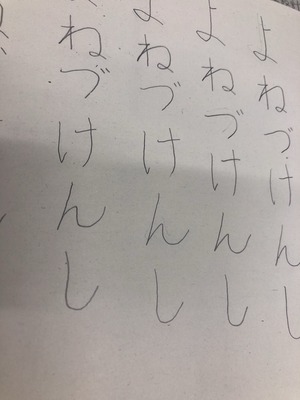 よねづけんし
よねづけんし
よねづけんし
ねづけんし